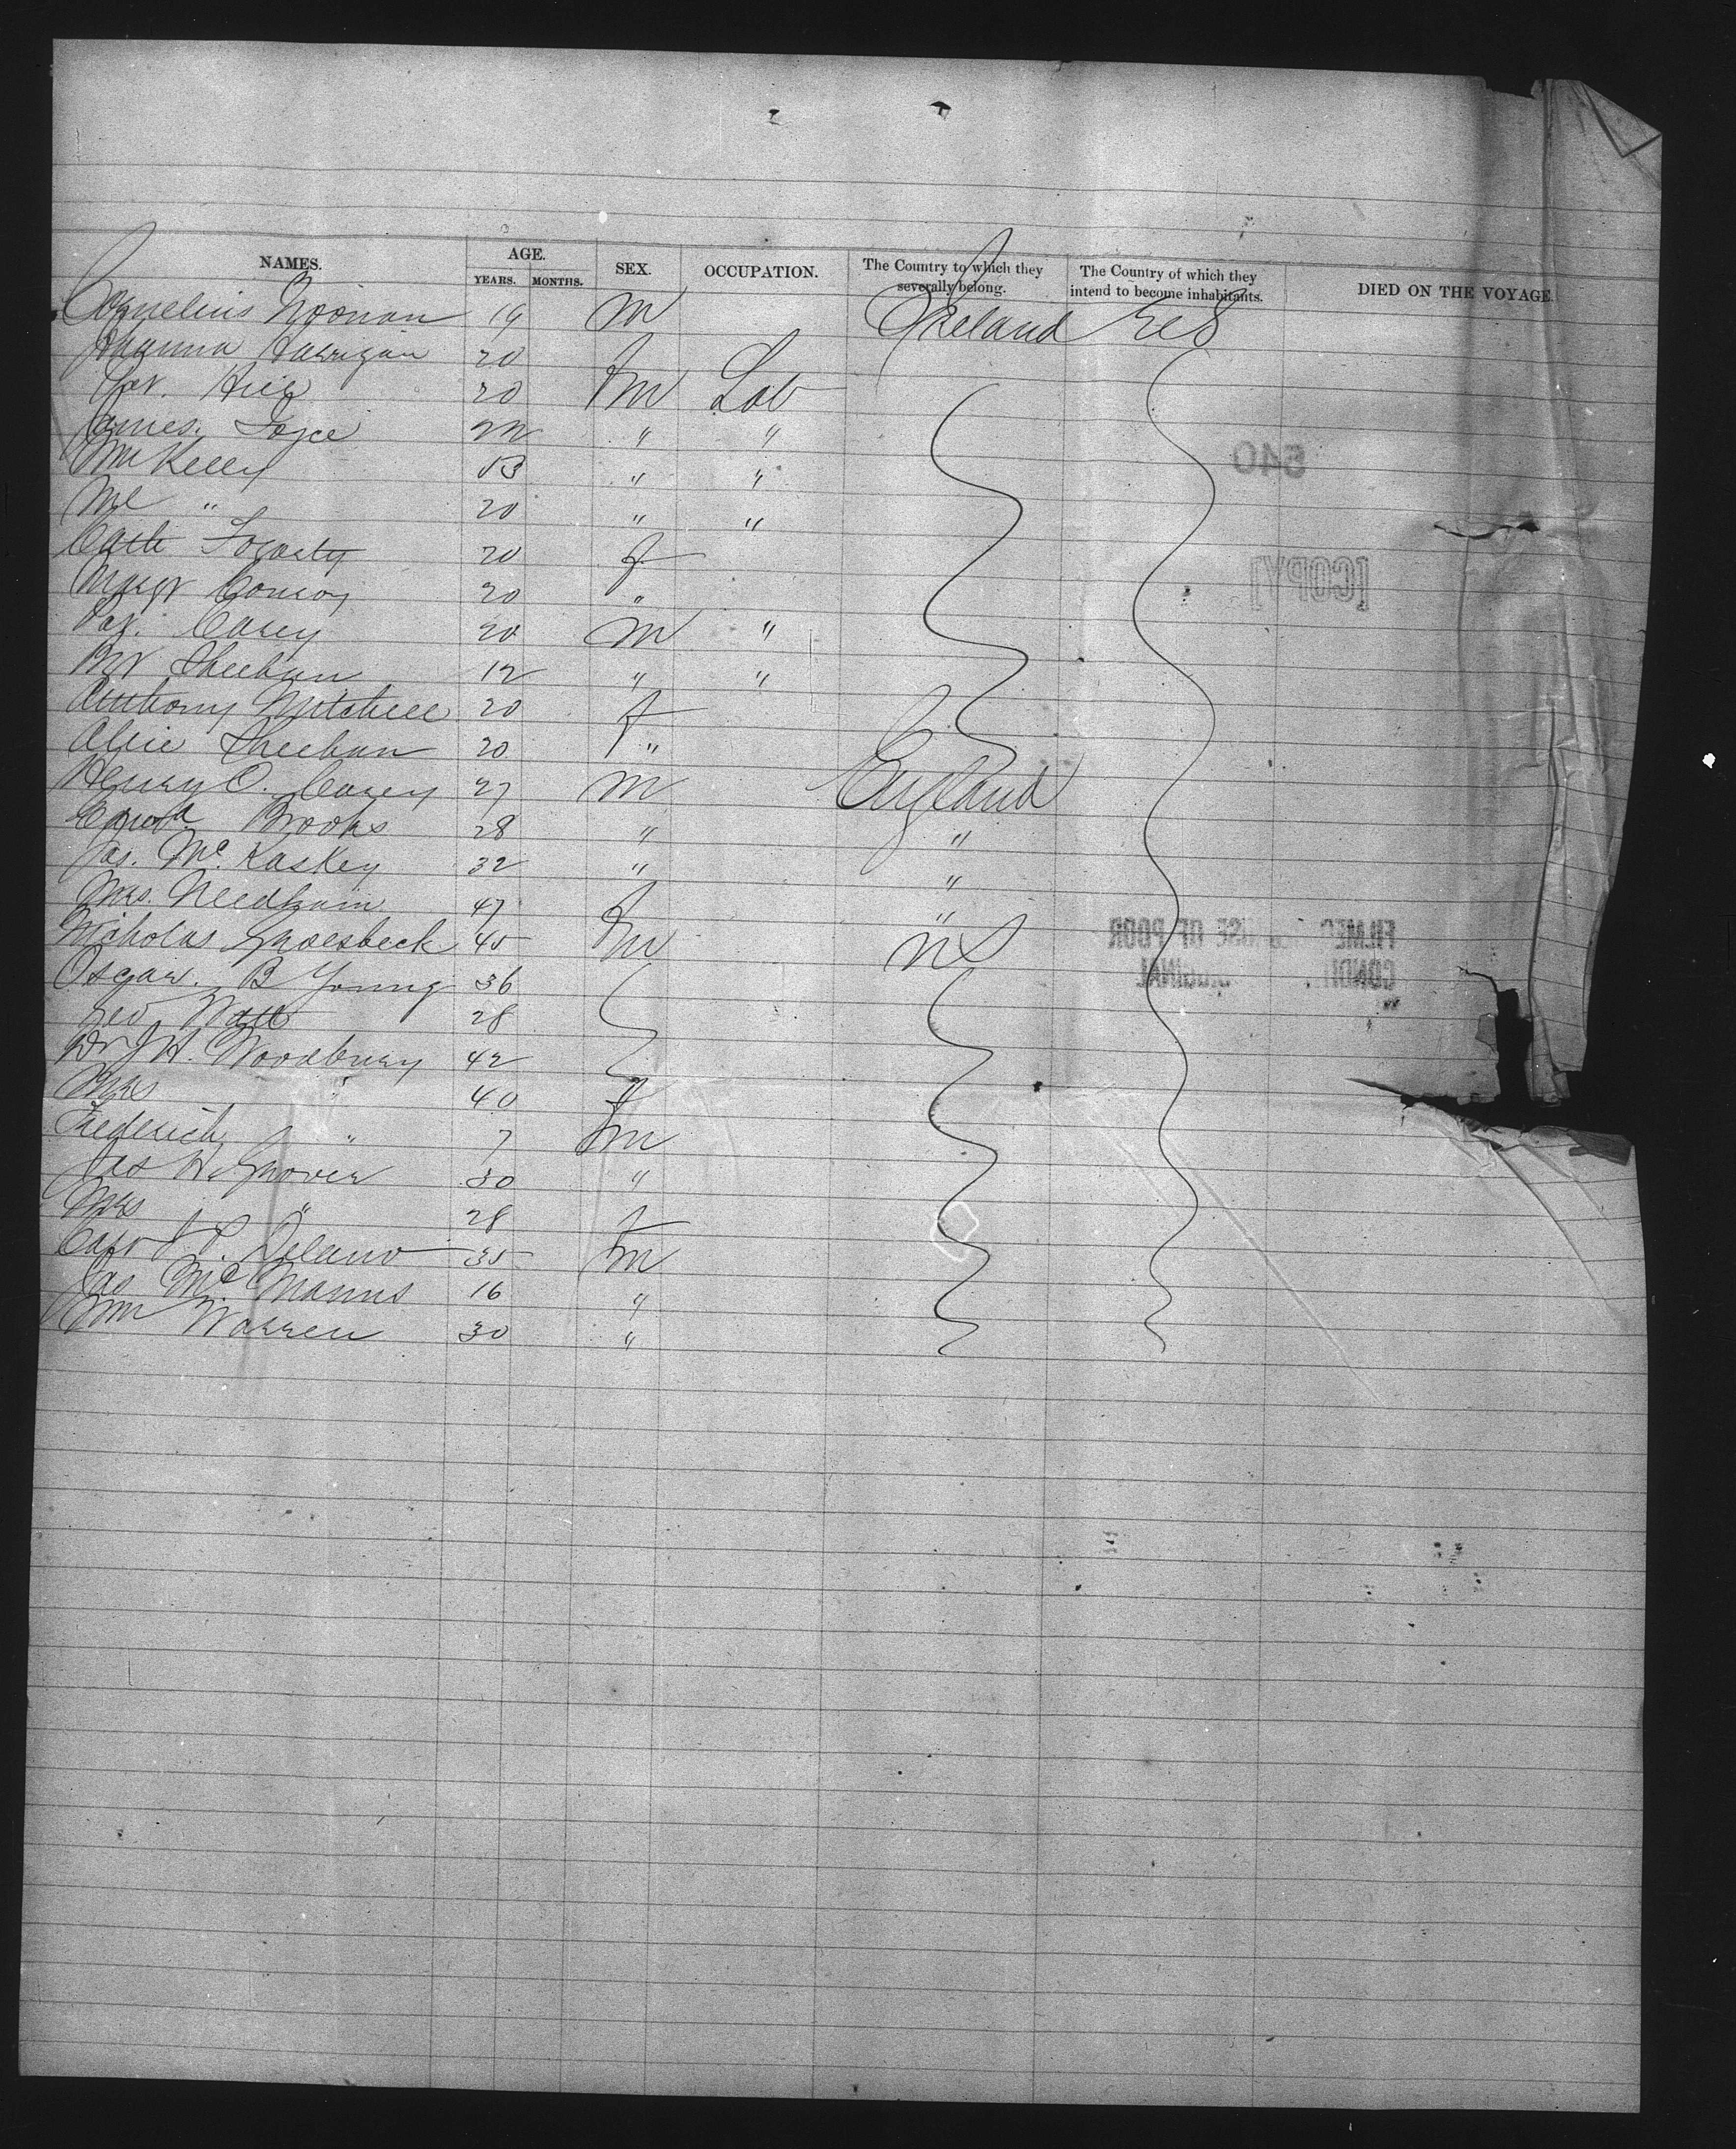 NAMES. AGE. SEX. OCCUPATION. The Country to which they severally belong. The Country of which they intend to become inhabitants. DIED ON THE VOYAGE.
YEARS. MONTHS.
Cornelius Noonan 19 M Ireland
Johanna Harrigan 20 f
20 M Lab
James. Joyce 22 " "
Wm Kelly " "
Ml " 20 " "
Cath Fogarty 20 f
Margt Conroy 20 "
Pat. Casey 20 M "
Sheehan 12 " "
Anthony Mitchell 20 f
Alice Sheehan 20 "
Henry C. Carey 27 M England
Edwd Brooks 28 " "
Jas. Mc Kaskey 32 " "
Mrs. Needham 47 f "
Nicholas Groesbeck 45 M US
Oscar. B Young 36
Geo Watt 28
Dr J H. Woodbury 42
Mrs " 40 f
Frederick " 7 M
Jas H. Grover 30 "
Mrs " 28 f
Capt J P. Delano 35 M
Jas Mc Manus 16 "
Wm Warren 30 "
540
[COPY]
FILMED BECAUSE OF POOR
CONDITION ORIGINAL